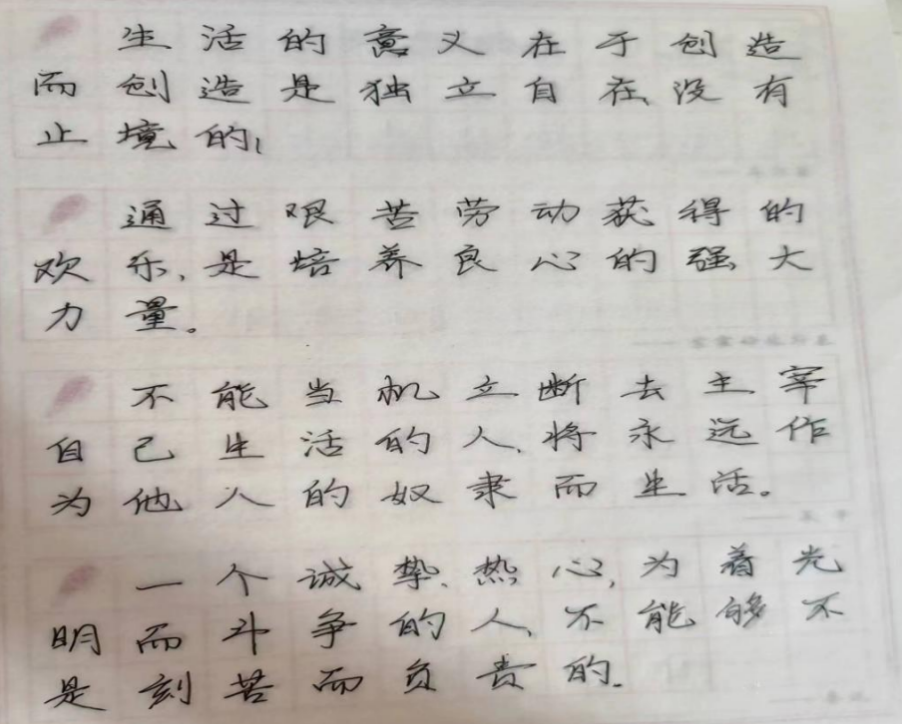 生活的意义在于创造
而创造是独立自在没有
止境的,
通过艰苦劳动获得的
欢乐,是培养良心的强大
力量。
不能当机立断去主宰
自己生活的人,将永远作
为他人的奴隶而生活。
一个诚挚、热心,为着光
明而斗争的人,不能够不
是刻苦而负责的.